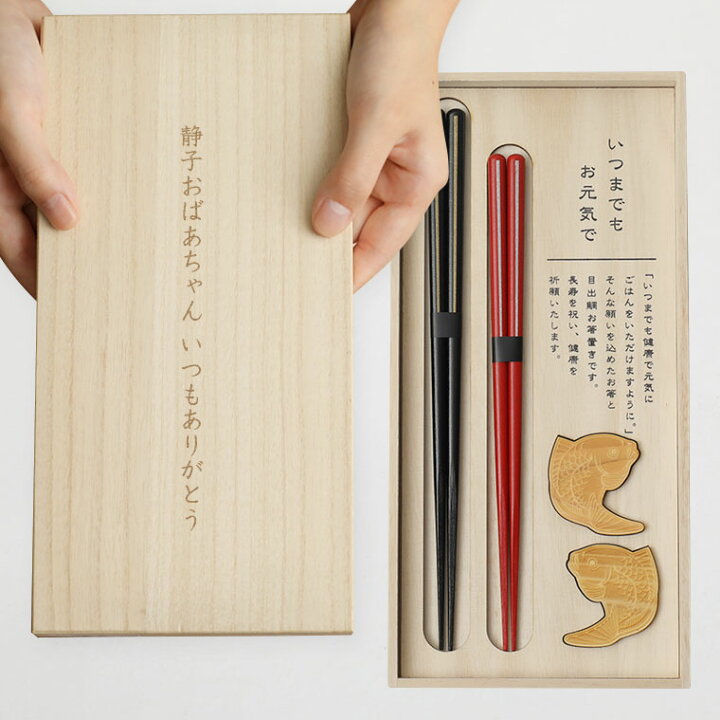 静子おばあちゃん いつもありがとう
いつまでも
お元気で
「いつまでも健康で元気に
ごはんをいただけますように。」
そんな願いを込めたお箸と
目出鯛お箸置きです。
長寿を祝い、健康を
祈願いたします。